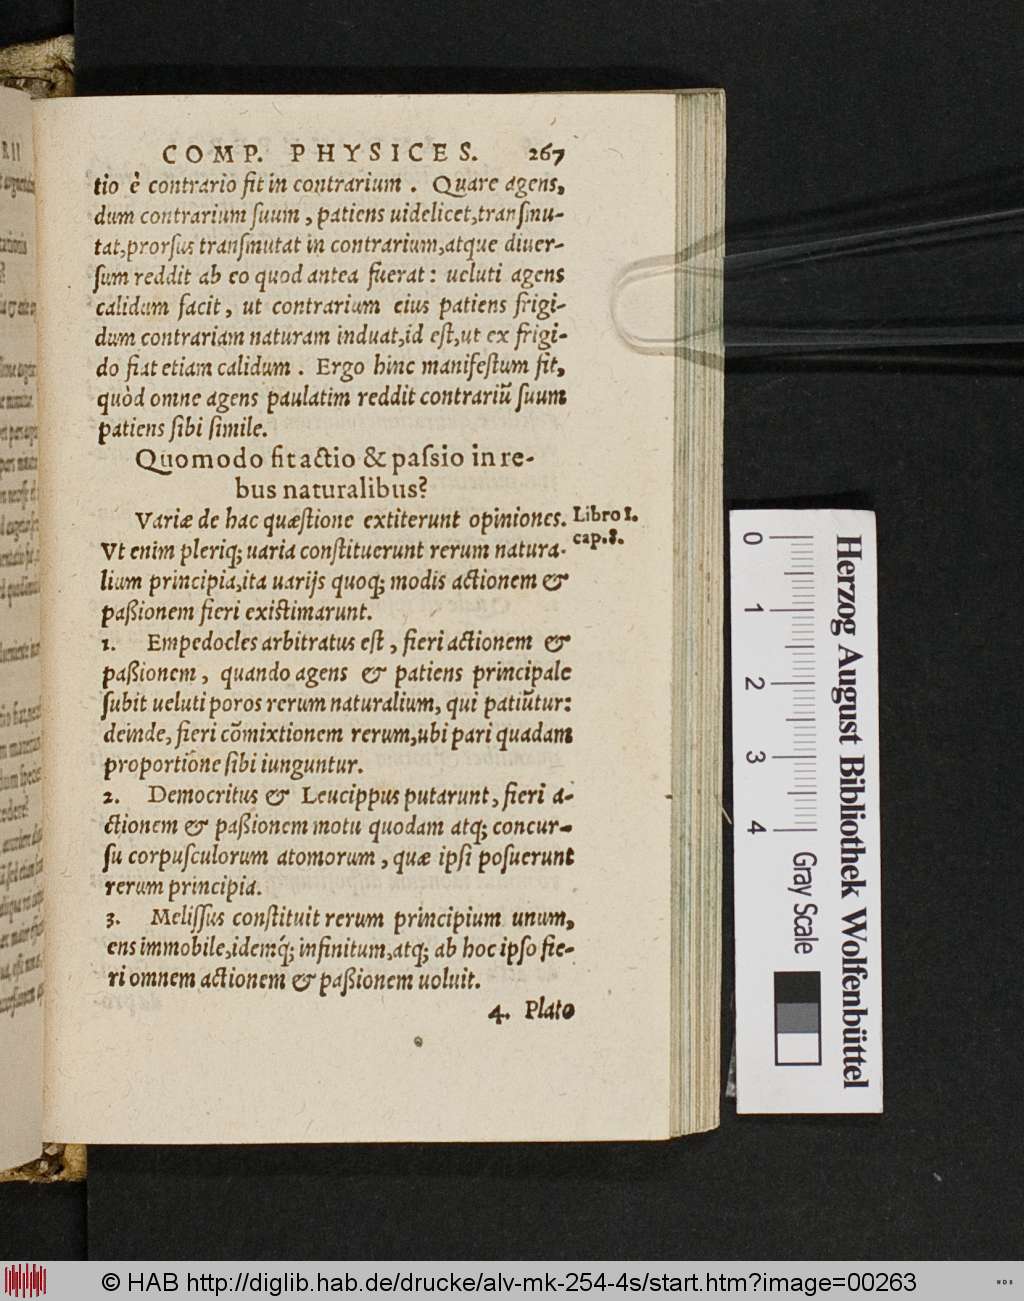 COMP. PHYSICES. 267
tio è contrario fit in contrarium . Quare agens,
dum contrarium ſuum , patiens uidelicet,tranſmu-
tat,prorſus tranſmutat in contrarium,atque diuer-
ſum reddit ab eo quod antea fuerat : ueluti agens
calidum facit , ut contrarium eius patiens frigi-
dum contrariam naturam induat,id eſt,ut ex frigi-
do fiat etiam calidum . Ergo hinc manifeſtum fit,
quòd omne agens paulatim reddit contrariũ ſuum
patiens ſibi ſimile.
Quomodo fit actio & paſsio in re-
bus naturalibus?
Variæ de hac quæſtione extiterunt opiniones. Libro 1.
cap.8.
Vt enim pleriq; uaria conſtituerunt rerum natura-
lium principia,ita uarijs quoq; modis actionem &
paßionem fieri exiſtimarunt.
1. Empedocles arbitratus eſt , fieri actionem &
paßionem , quando agens & patiens principale
ſubit ueluti poros rerum naturalium, qui patiũtur:
deinde, fieri cõmixtionem rerum,ubi pari quadam
proportione ſibi iunguntur.
2. Democritus & Leucippus putarunt, fieri a-
ctionem & paßionem motu quodam atq; concur-
ſu corpuſculorum atomorum , quæ ipſi poſuerunt
rerum principia.
3. Meliſſus conſtituit rerum principium unum,
ens immobile,idemq́; infinitum,atq; ab hoc ipſo fie-
ri omnem actionem & paßionem uoluit.
4. Plato
0 1 2 3 4
Gray Scale
Herzog August Bibliothek Wolfenbüttel
© HAB http://diglib.hab.de/drucke/alv-mk-254-4s/start.htm?image=00263